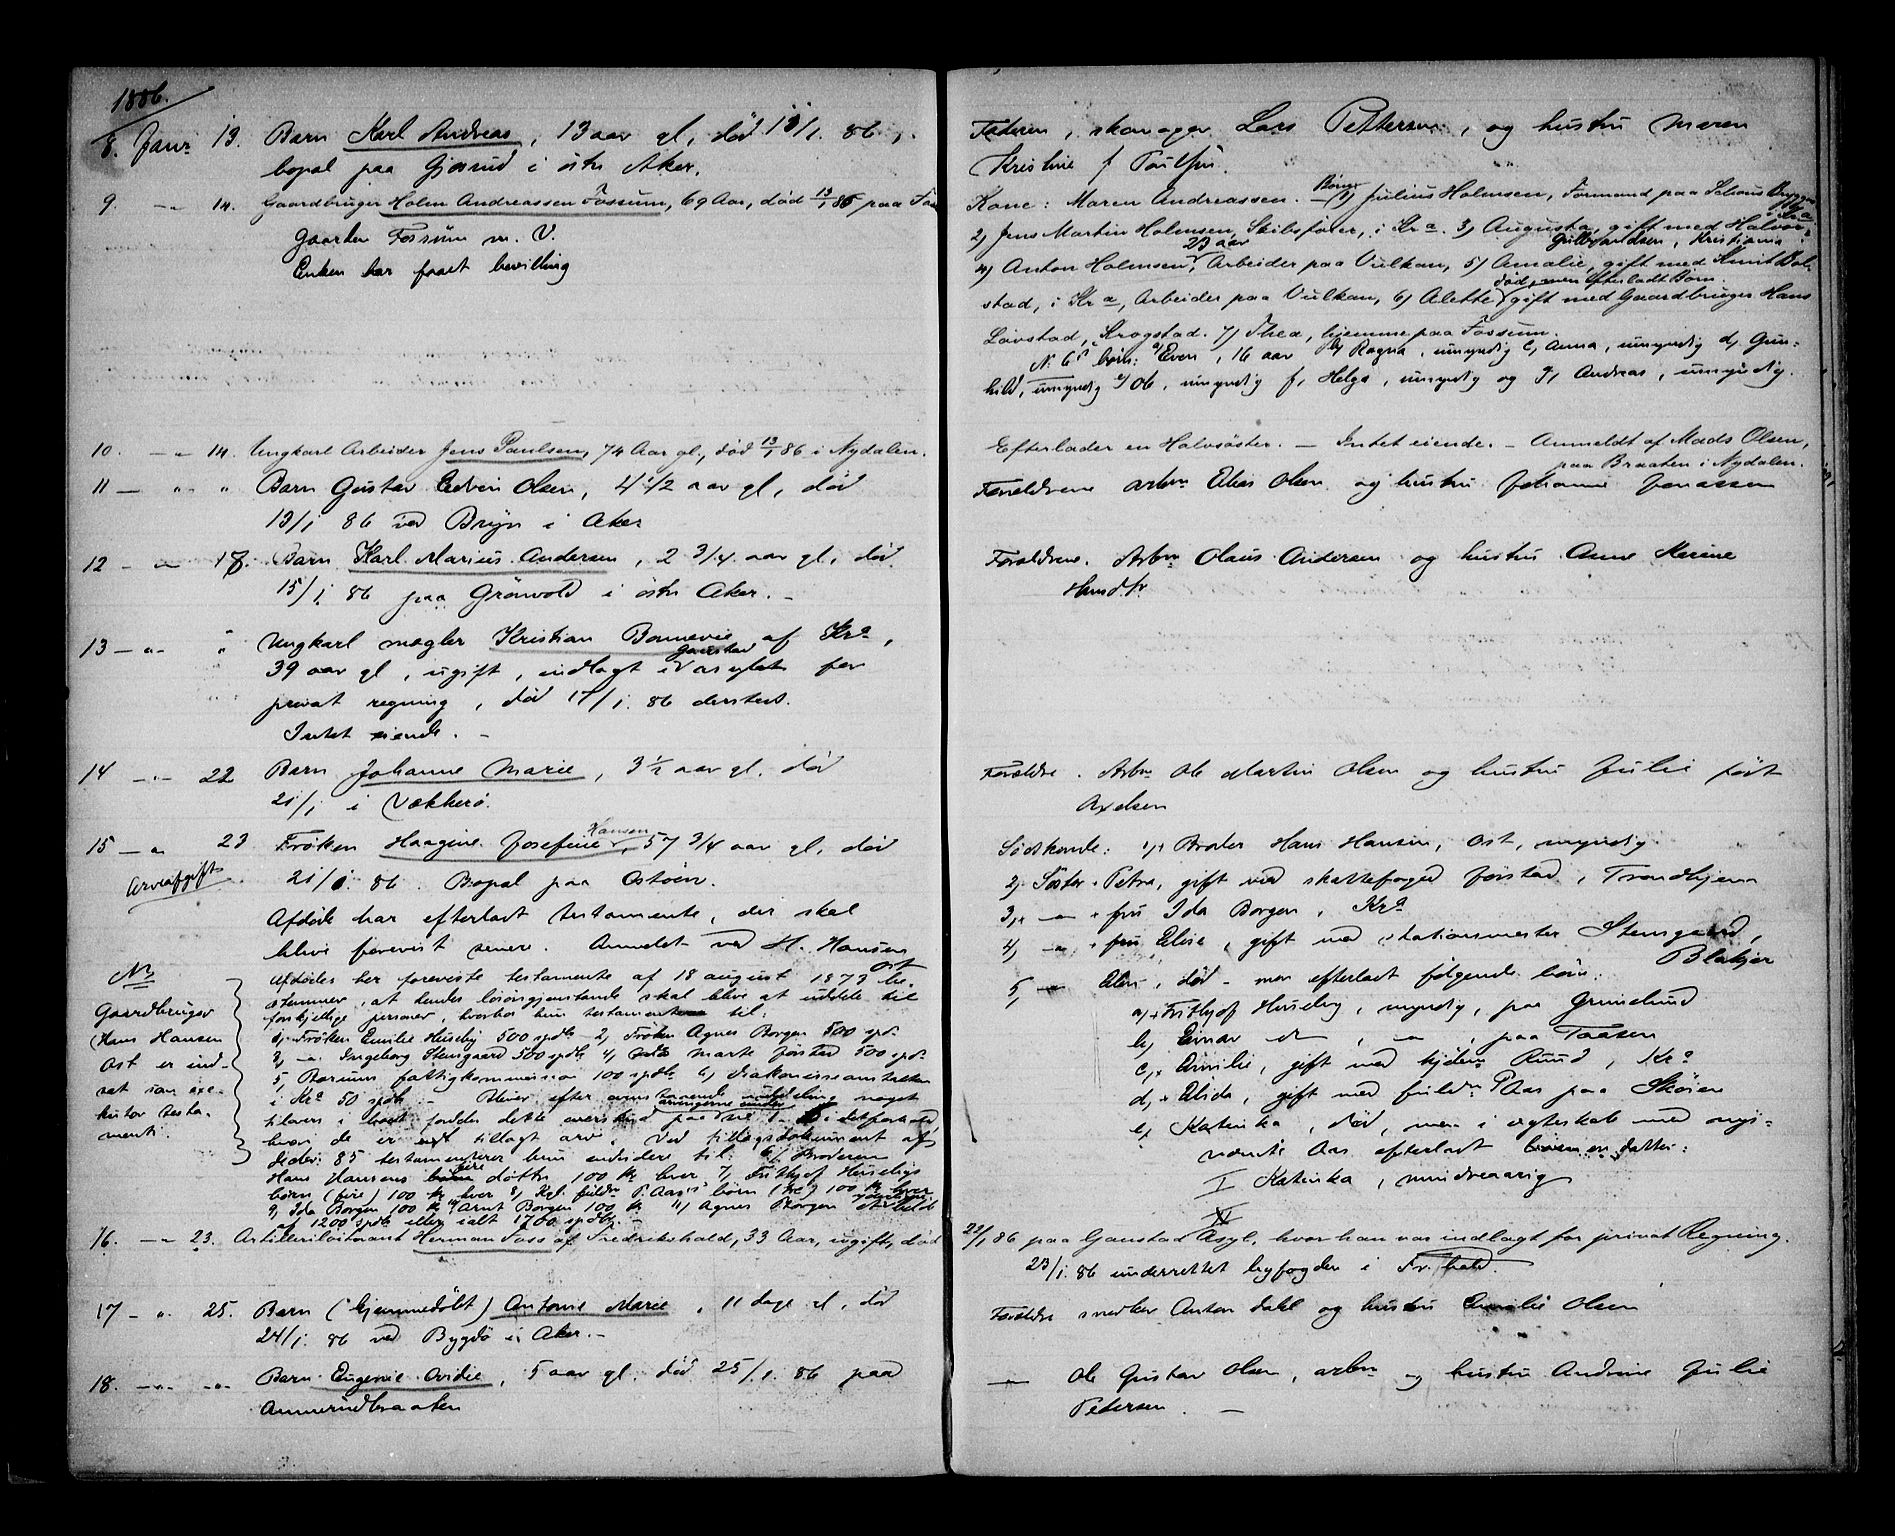 1886.
8. Janr 13. Barn Karl Andreas, 13 aar gl, død 11/1. 86,
bopæl paa i östr Aker.
Faderen, skomager Lars Pettersen, og hustru Maren
Kristine f
9. -"- 14. Gaardbruger Holm Andreassen Fossum, 69 Aar, død 13/1 86 paa
Gaarden Fossum m. V.
Enken har faaet bevilling
Kone: Maren Andreassen. - Børn 1) Julius Holmsen, Formand paa Brygge
i Kra
2) Jens Martin Holmsen, Skibsfører, i Kra. 3) Augusta, gift med Halvor
Gulbrandsen, Kristiania.
4) Anton Holmsen, 23 aar Arbeider paa Vulkan, 5) Amalie, gift med Knut
stad, i Kra, Arbeider paa Vulkan, 6) Alette, død, men efterladt Børn gift med Gaardbruger Hans
Løvstad, Krogstad. 7) Thea, hjemme paa Fossum.
No 6s børn: a) Even, 16 aar b) Ragna, umyndig c) Anna, umyndig d) Gun-
hild, umyndig e) Ole, umyndig f) Helga, umyndig og g) Andreas, umyndig.
10. -"- 14. Ungkarl Arbeider Jens Paulsen, 74 Aar gl., død 13/1 86 i Nydalen.
Efterlader en Halvsøster. - Intet eiende. - Anmeldt af Mads Olsen,
paa Braaten i Nydalen.
11 - " " " Barn Gustav Edvin Olsen, 4 1/2 aar gl, død
13/1 86 ved Bryn i Aker
Forældrene arbm Elias Olsen og hustru Johanne Jonassen
12 - " - 18. Barn Karl Marius Andersen, 2 3/4 aar gl, død
15/1. 86 paa Grönvold i östr Aker. -
Forældrene. Arbm Olaus Andersen og hustru Anne Marine
13 - " - " Ungkarl mægler Kristian Bonnevie af Kra,
39 aar gl, ugift, indlagt i Gaustad asylet for
privat regning, død 17/1. 86 dersteds.
Intet eiende. -
14 - " - 22 Barn Johanne Marie, 3 1/2 aar gl. død
21/1 i Vækkerö.
Forældre. Arbm Ole Martin Olsen og hustru Julie født
Axelsen
15 - " 23 Frøken Haagine Josefine Hansen, 57 3/4 aar gl, død
Arveafgift
21/1. 86. Bopæl paa Ostøen.
Afdøde har efterladt testamente, der skal
blive forevist senere. Anmeldt ved H. Hansen
Ost
Södskende: 1) Broder Hans Hansen, Ost, myndig
2) Söster Petra, gift med skattefoged Jørstad, Trondhjem
3) - " - fru Ida Borgen, Kra
4) - " - fru Elise, gift med stationsmester Stensgaard,
Blakjer
5) - " - død - men efterladt følgende børn:
a) Frithjof Huseby, myndig, paa Grimelund
b) Einar do, - " -, paa Taasen
c) Emilie, gift med Ruud, Kra
d) Elida, gift med fuldm P Aas paa Skøien
e) Katinka, død, men i ægteskab med nys-
nævnte Aas efterladt en datter:
I Katinka, mindreaarig
NB
Gaardbruger
Hans Hansen
Ost er ind-
sat som exe-
kutor testa-
menti.
Afdødes her foreviste testamente af 18 august 1873 be-
stemmer, at hendes løsøregjenstande skal blive at uddele til
forskjellige personer, hvorhos hun testamenterer til:
1) Frøken Emilie Huseby 500 spdlr 2) Frøken Agnes Borgen 500 spdlr
3) - " - Ingeborg Stensgaard 500 spdlr 4) Marte Jørstad 500 spdlr
5) Bærums fattigkommission 100 spdlr 6) diakonisseanstalten
i Kra 50 spdlr - Bliver efter uddeling noget
tilovers fordeles dette paa i det forhold
hvori de er tillagt arv. Ved tillægsdokument af
85 testamenterer hun endvidere til: 6) Broderen
Hans Hansens døttre 100 kr hver 7) Frithjof Husebys
børn (fire) 100 kr hver 8) fuldm P. Aas's børn 100 kr hver
9) Ida Borgen 100 kr 10) Arnt Borgen 100 kr 11) Agnes Borgen
af 1200 spdlr eller ialt 1700 spdlr. -
16. -"- 23. Artilleriløitnant Herman Foss af Fredrikshald, 33 Aar, ugift, død
22/1 86 paa Gaustad Asyl, hvor han var indlagt for privat Regning.
23/1. 86 underrettet byfogden i Fr.hald.
17 - " 25. Barn (hjemmedöbt) Antonie Marie, 11 dage gl, død
24/1. 86 ved Bygdö i Aker. -
Forældre snedker Anton Dahl og hustru Olsen
18. -"- -"- Barn Eugenie Ovidie, 5 aar gl. død 25/1. 86 paa
Ammerudbraaten
- " - Ole Gustav Olsen, arbm og hustru Andrine Julie
Petersen. -